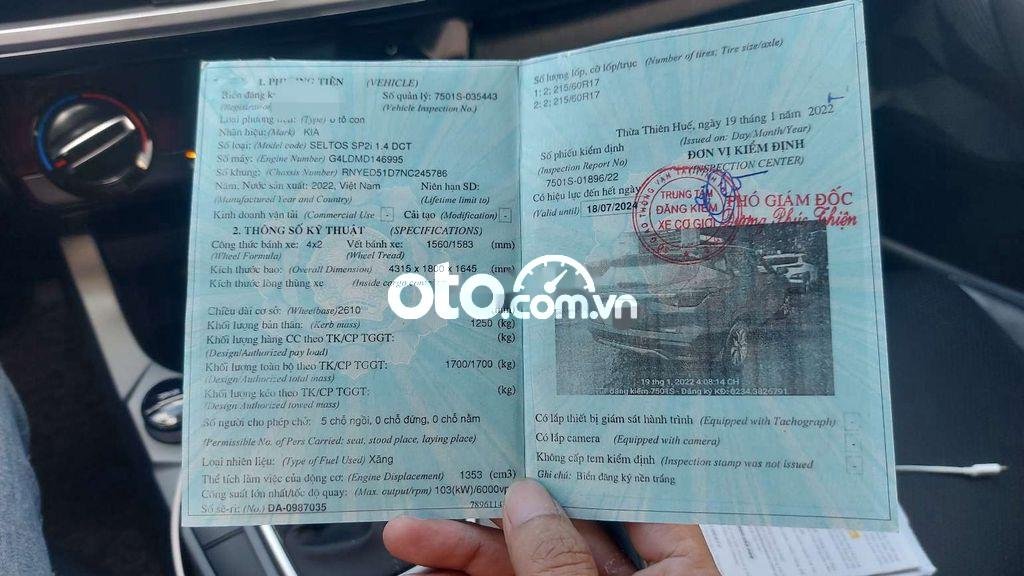 1. PHƯƠNG TIỆN (VEHICLE)
Biển đăng k
Số quản lý: 7501S-035443
(Registrat
(Vehicle Inspection No.)
Loại phương tiện: (Type) Ô tô con
Nhãn hiệu: (Mark) KIA
Số loại: (Model code) SELTOS SP2i 1.4 DCT
Số máy: (Engine Number) G4LDMD146995
Số khung: (Chassis Number) RNYED51D7NC245786
Năm, Nước sản xuất: 2022, Việt Nam Niên hạn SD:
(Manufactured Year and Country) (Lifetime limit to)
Kinh doanh vận tải (Commercial Use - Cải tạo (Modification) -
2. THÔNG SỐ KỸ THUẬT (SPECIFICATIONS)
Công thức bánh xe: 4x2 Vết bánh xe: 1560/1583 (mm)
(Wheel Formula) (Wheel Tread)
Kích thước bao: (Overall Dimension) 4315 x 1800 x 1645 (mm)
Kích thước lòng thùng xe (Inside cargo
Chiều dài cơ sở: (Wheelbase) 2610
Khối lượng bản thân: (Kerb mass) 1250 (kg)
Khối lượng hàng CC theo TK/CP TGGT: (kg)
(Design/Authorized pay load)
Khối lượng toàn bộ theo TK/CP TGGT: 1700/1700 (kg)
(Design/Authorized total mass)
Khối lượng kéo theo TK/CP TGGT: (kg)
(Design Authorized towed mass)
Số người cho phép chở: 5 chỗ ngồi, 0 chỗ đứng, 0 chỗ nằm
(Permissible No. of Pers Carried: seat, stood place, laying place)
Loại nhiên liệu: (Type of Fuel Used) Xăng
Thể tích làm việc của động cơ: (Engine Displacement) 1353 (cm3)
Công suất lớn nhất/tốc độ quay: (Max. output/rpm) 103(kW)/6000vp
Số sê-ri: (No.) DA-0987035
Số lượng lốp, cỡ lốp/trục (Number of tires; Tire size/axle)
1: 2; 215/60R17
2: 2; 215/60R17
Thừa Thiên Huế, ngày 19 tháng 1 năm 2022
(Issued on: Day/Month/Year)
Số phiếu kiểm định
ĐƠN VỊ KIỂM ĐỊNH
(Inspection Report No)
(INSPECTION CENTER)
7501S-01896/22
Có hiệu lực đến hết ngày
(Valid until) 18/07/2024
TRUNG TÂM
ĐĂNG KIỂM
XE CƠ GIỚI
PHÓ GIÁM ĐỐC
oto.com.vn
19 thg 1, 2022 4:08:14 CH
đăng kiểm 7501S - Đăng ký KĐ: 0234.3826791
Có lắp thiết bị giám sát hành trình (Equipped with Tachograph) -
Có lắp camera (Equipped with camera) -
Không cấp tem kiểm định (Inspection stamp was not issued -
Ghi chú: Biển đăng ký nền trắng